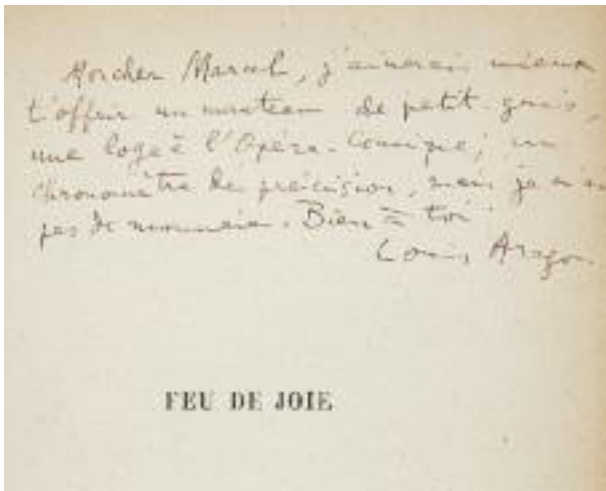 Mon cher Marcel, j'aimerais mieux
t'offrir un manteau de petit-gris,
une loge à l'Opéra-Comique, un
chronomètre de précision, mais je n'ai
pas de monnaie. Bien à toi
Louis Aragon
FEU DE JOIE